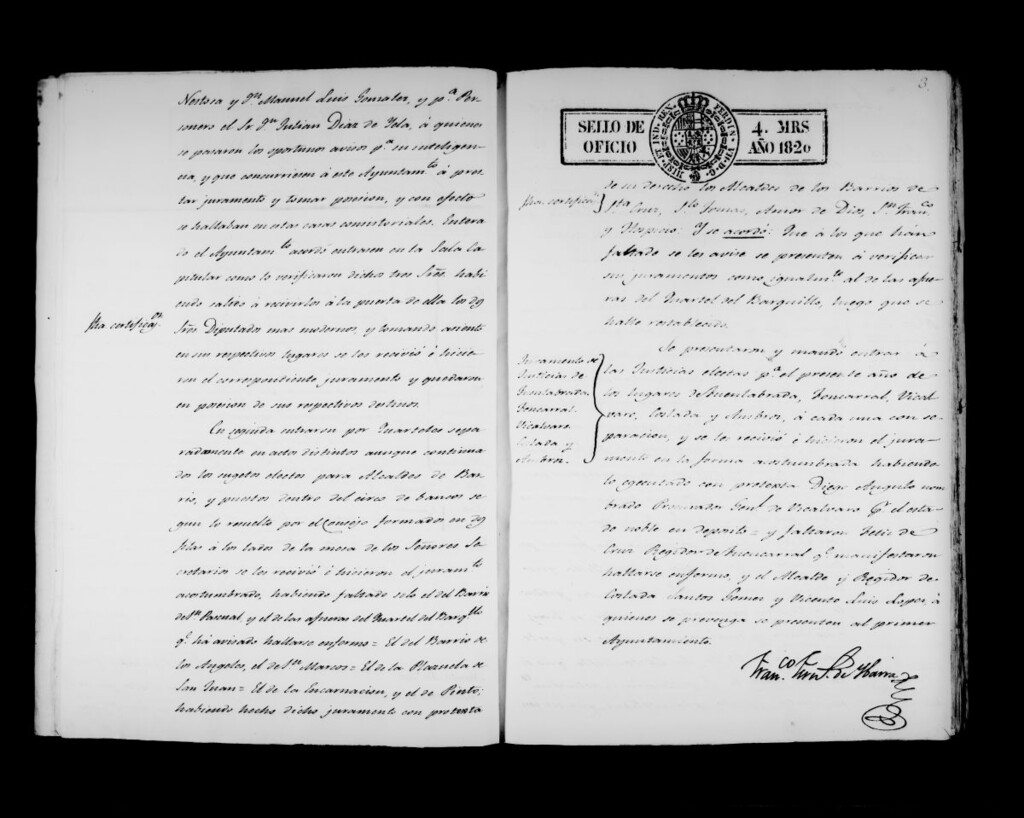 Nestosa y Dn. Manuel Luis Gonzalez, y pa. Per-
sonero el Sr. Dn. Julian Diaz de Yela, à quienes
se pasaron los oportunos avisos pa. su inteligen-
cia, y que concurriesen à este Ayuntamto. à pres-
tar juramento y tomar posesion, y con efecto
se hallaban en estas casas consistoriales. Entera-
do el Ayuntamto. acordó entrasen en la Sala Ca-
pitular como lo verificaron dichos tres Sres. habi-
endo salido à recivirlos à la puerta de ella los dos
Sres. Diputados mas modernos, y tomando asiento
fha. certificaon.
en sus respectivos lugares se les recivió è hicie-
ron el correspondiente juramento y quedaron
en posesion de sus respectivos destinos.
En seguida entraron por Quarteles sepa-
radamente en actos distintos aunque continua-
dos los sugetos electos para Alcaldes de Bar-
rio, y puestos dentro del circo de bancos se-
gun lo resuelto por el Consejo formados en dos
filas à los lados de la mesa de los Señores Se-
cretarios se les recivió è hicieron el juramto.
acostumbrado, habiendo faltado solo el del Barrio
de Sn. Pascual, y el de las afueras del Quartel del Barqllo.
q. ha avisado hallarse enfermo = El del Barrio de
los Angeles, el de Sn. Marcos = El de la Plazuela de
San Juan = El de la Encarnacion, y el de Pinto,
habiendo hecho dicho juramento con protexta
3.
SELLO DE OFICIO
HISP. ET IND. REX. FERDIN. VII. D. G.
4. MRS AÑO 1820
fha. certificaon.
de su derecho los Alcaldes de los Barrios de
Sta. Cruz, Sto. Tomas, Amor de Dios, Sn. Franco.
y Hospicio: Y se acordó: Que à los que han
faltado se les avise se presenten à verificar
sus juramentos como igualmte. al de las afue-
ras del Quartel del Barquillo, luego que se
halle restablecido.
Juramento de
Justicias de
Fuenlabrada
Foncarral
Vicalvaro
Coslada y
Ambroz.
Se presentaron y mandó entrar à
las Justicias electas pa. el presente año de
los lugares de Fuenlabrada, Foncarral, Vical-
varo, Coslada y Ambroz, à cada una con se-
paracion, y se les recivió è hicieron el jura-
mento en la forma acostumbrada habiendo
lo egecutado con protexta Diego Angulo nom-
brado Procurador Genl. de Vicalvaro pr. el esta-
do noble en deposito = y faltaron Felix de
Cruz Regidor de Foncarral q. manifestaron
hallarse enfermo, y el Alcalde y Regidor de
Coslada Santos Gomez y Vicente Luis Lopez, à
quienes se prevenga se presenten al primer
Ayuntamiento.
Franco. Fern. de Ibarra